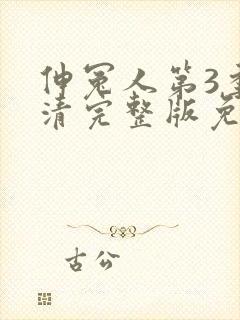 伸冤人第3季
清完整版免
古公